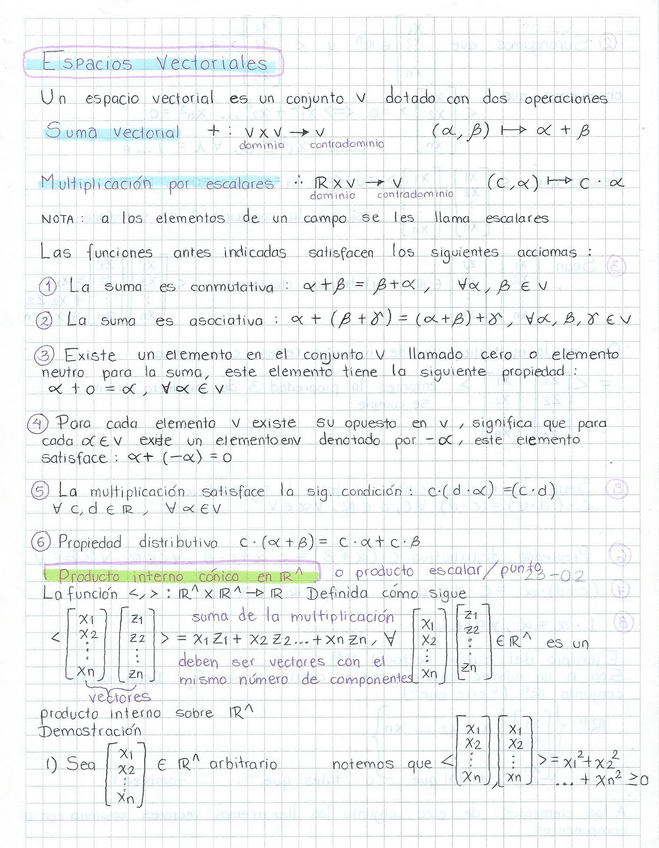 Espacios Vectoriales
Un espacio vectorial es un conjunto V dotado con dos operaciones
Suma vectorial + : V x V → V (α, β) ↦ α + β
dominio contradominio
Multiplicación por escalares ∴ ℝ x V → V (C, α) ↦ C · α
dominio contradominio
NOTA : a los elementos de un campo se les llama escalares
Las funciones antes indicadas satisfacen los siguientes acciomas :
① La suma es conmutativa : α + β = β + α , ∀α, β ∈ V
② La suma es asociativa : α + (β + γ) = (α + β) + γ, ∀α, β, γ ∈ V
③ Existe un elemento en el conjunto V llamado cero o elemento
neutro para la suma, este elemento tiene la siguiente propiedad :
α + 0 = α, ∀ α ∈ V
④ Para cada elemento V existe su opuesto en V , significa que para
cada α ∈ V existe un elemento en V denotado por - α, este elemento
satisface : α + (-α) = 0
⑤ La multiplicación satisface la sig. condición : c·(d·α) =(c·d)
∀ c, d ∈ ℝ , ∀ α ∈ V
⑥ Propiedad distributiva c · (α + β) = c · α + c · β
Producto interno cónica en ℝ^ o producto escalar/punto
23-02
La función <,> : ℝ^ x ℝ^ → ℝ Definida cómo sigue
suma de la multiplicación
< [x1 x2 ⋮ xn] [z1 z2 ⋮ zn] > = x1 z1 + x2 z2 ... + xn zn, ∀ [x1 x2 ⋮ xn] [z1 z2 ⋮ zn] ∈ ℝ^ es un
deben ser vectores con el
mismo número de componentes
vectores
producto interno sobre ℝ^
Demostración
1) Sea [x1 x2 ⋮ xn] ∈ ℝ^ arbitrario notemos que < [x1 x2 ⋮ xn] , [x1 x2 ⋮ xn] > = x1² + x2²
... + xn² ≥ 0